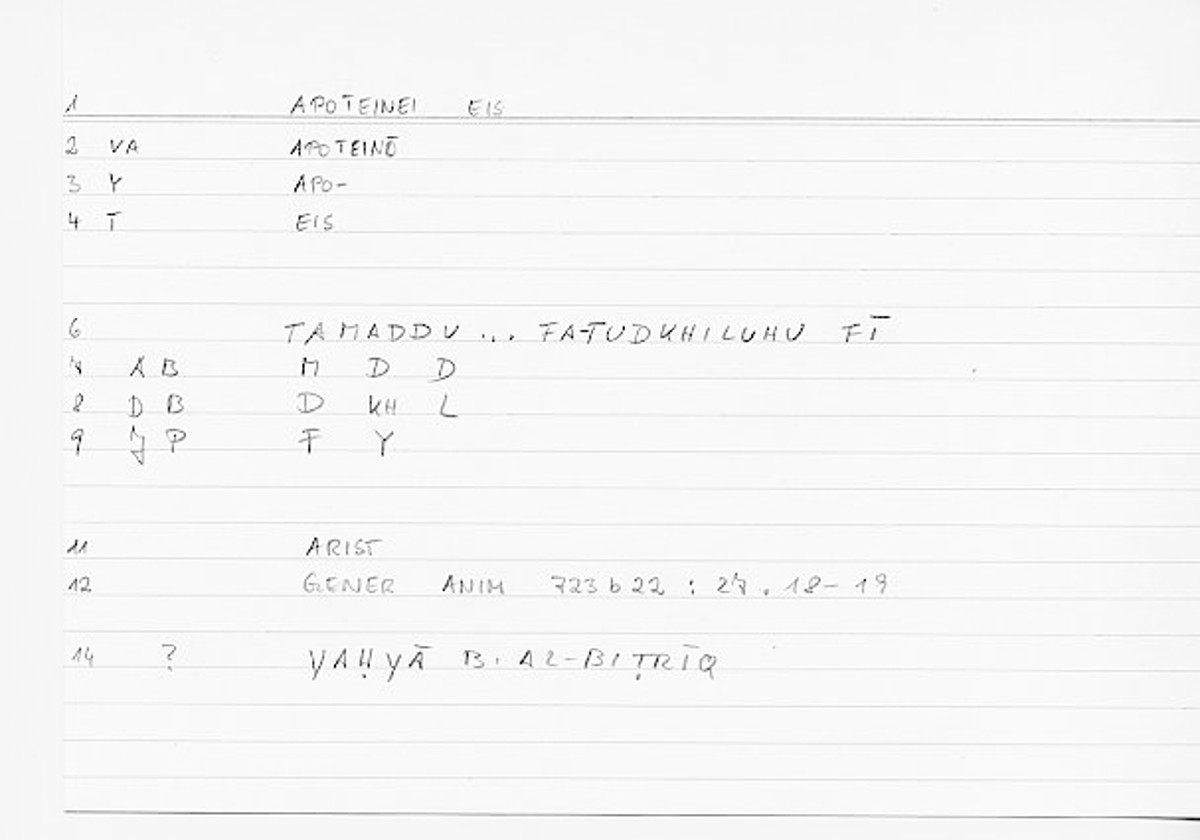 1 APOTEINEI EIS
2 VA APOTEINŌ
3 Y APO-
4 T EIS
6 TAMADDU ... FA-TUDKHILUHU FĪ
7 A B M D D
8 D B D KH L
9 J P F Y
11 ARIST
12 GENER ANIM 723 b 22 : 27 . 18 - 19
14 ? YAḤYĀ B. AL-BIṬRĪQ